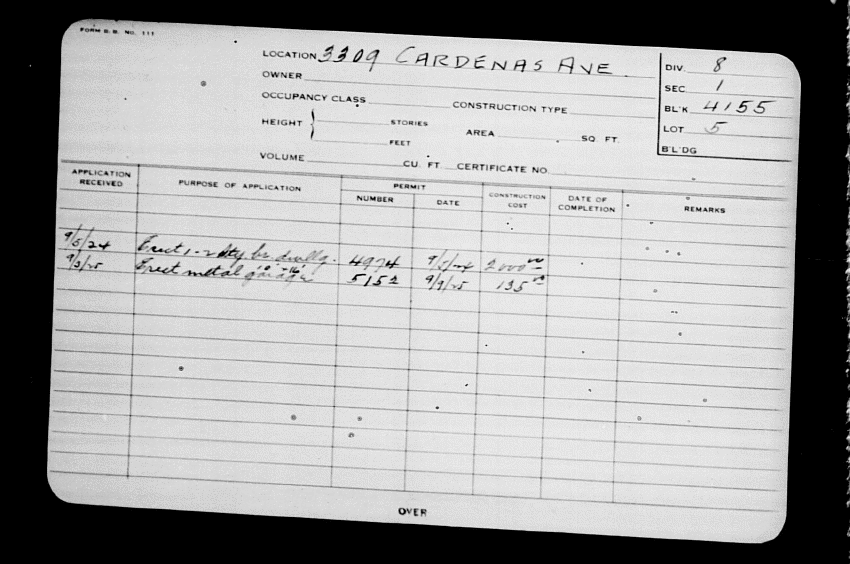 FORM B. B. NO. 111
LOCATION 3309 CARDENAS AVE.
DIV. 8
OWNER
SEC. 1
OCCUPANCY CLASS CONSTRUCTION TYPE
BL'K 4155
HEIGHT STORIES
FEET
AREA SQ. FT.
LOT 5
B'L'DG
VOLUME CU. FT. CERTIFICATE NO.
APPLICATION RECEIVED PURPOSE OF APPLICATION PERMIT NUMBER DATE CONSTRUCTION COST DATE OF COMPLETION REMARKS
9/5/24 Erect 1-2 sty br. dwellg. 4974 9/5/24 2000 00
9/9/25 Erect metal garage 10'-16' 5152 9/9/25 135 00
OVER